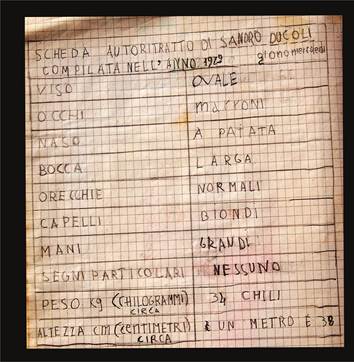 SCHEDA AUTORITRATTO DI SANDRO DUCOLI
COMPILATA NELL'ANNO 1979 giorno mercoledì
VISO OVALE
OCCHI marroni
NASO A PATATA
BOCCA LARGA
ORECCHIE NORMALI
CAPELLI BIONDI
MANI GRANDI
SEGNI PARTICOLARI NESSUNO
PESO Kg (CHILOGRAMMI) 34 CHILI
CIRCA
ALTEZZA cm (centimetri) UN METRO E 38
CIRCA